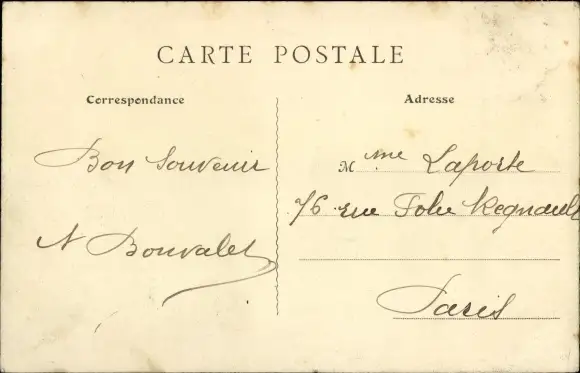 CARTE POSTALE
Correspondance
Adresse
Bon Souvenir
N Bouvalet
Mme Laporte
76 rue Folie Regnault
Paris